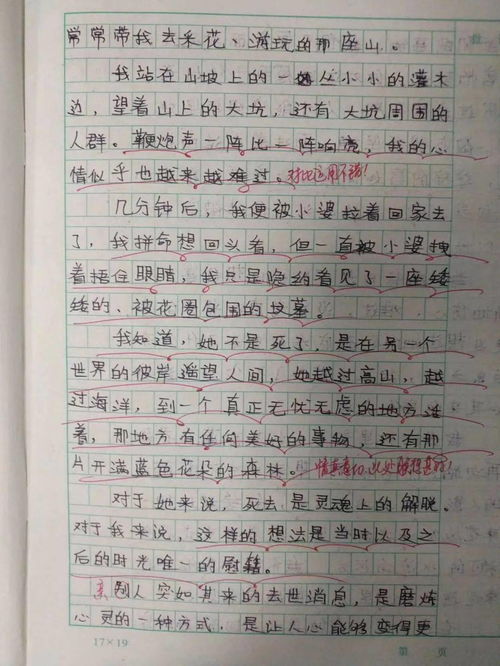 常常带我去采花、游玩的那座山。
我站在山坡上的一丛小小的灌木
边，望着山上的大坑，还有大坑周围的
人群。鞭炮声一阵比一阵响亮，我的心
情似乎也越来越难过。对比运用不错！
几分钟后，我便被小婆拉着回家去
了，我拼命想回头看，但一直被小婆拽
着捂住眼睛，我只是隐约看见了一座矮
矮的、被花圈包围的坟墓。
我知道，她不是死了，是在另一个
世界的彼岸遥望人间，她越过高山，越
过海洋，到一个真正无忧无虑的地方活
着，那地方有任何美好的事物，还有那
片开满蓝色花朵的森林。情真意切，此处
对于她来说，死去是灵魂上的解脱。
对于我来说，这样的想法是当时以及之
后的时光唯一的慰籍。
亲人突如其来的去世消息，是磨炼
心灵的一种方式，是让人心能够变得更
17×19
第 页